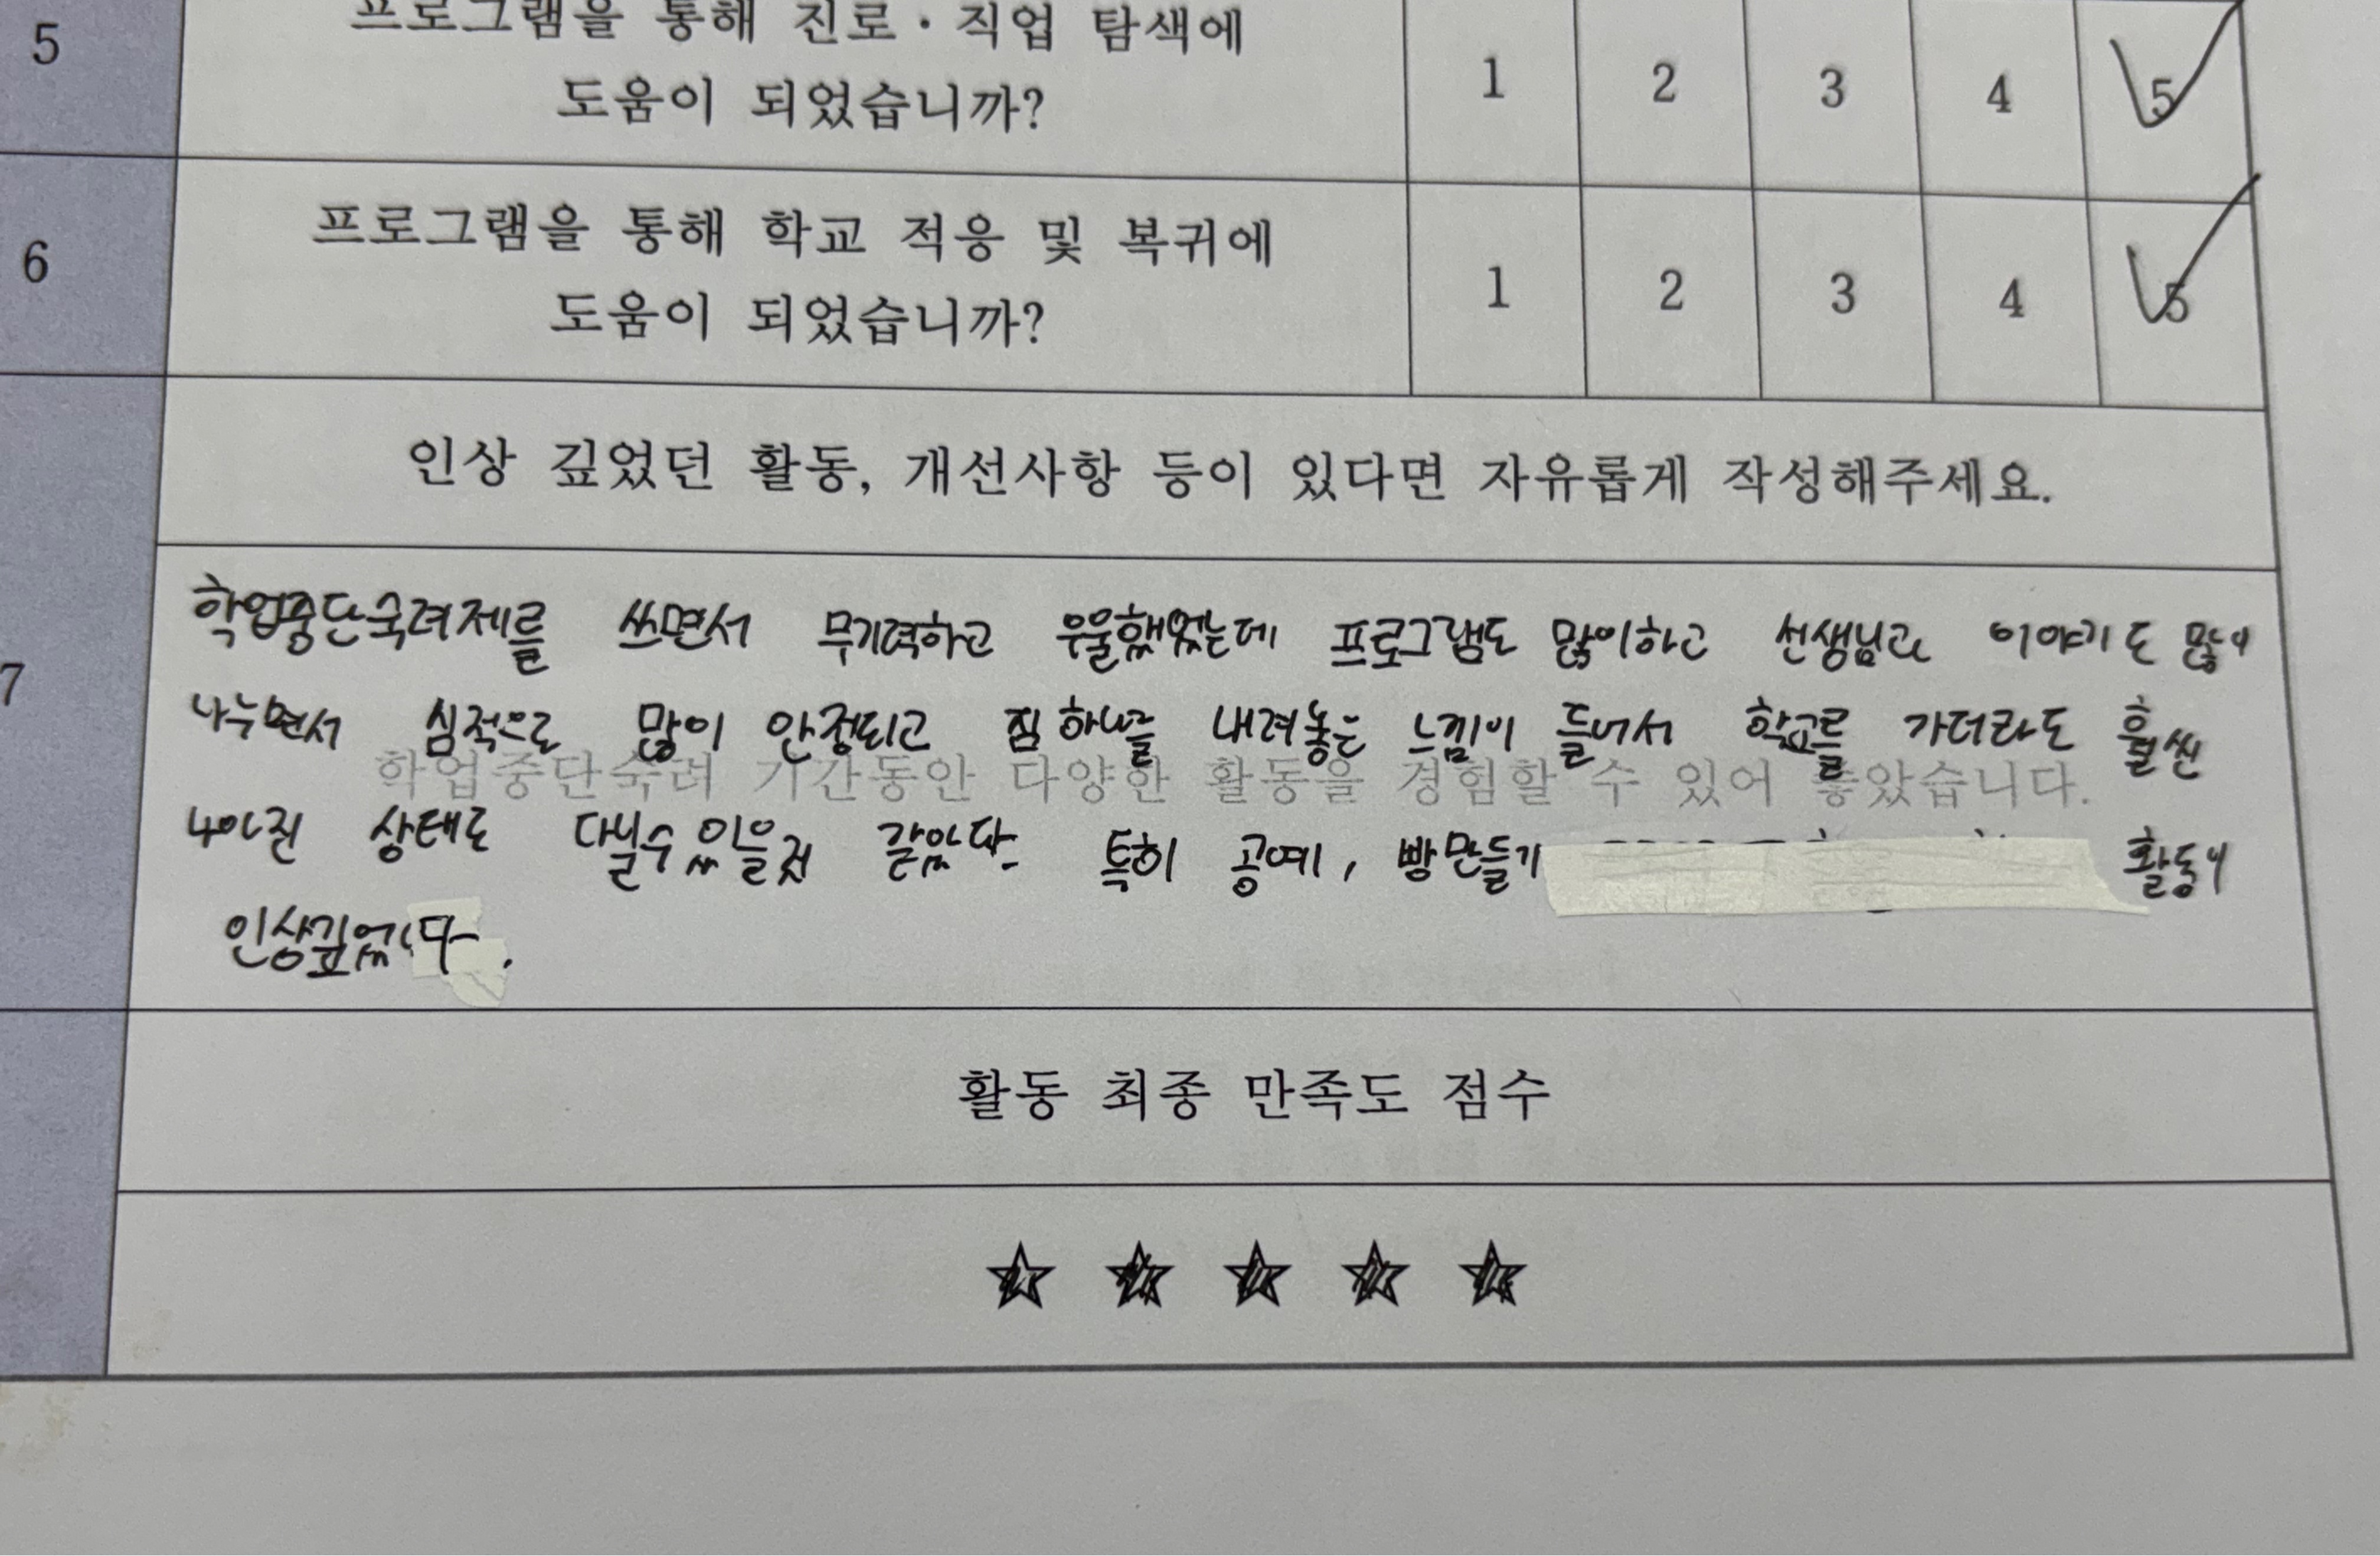 5
프로그램을 통해 진로·직업 탐색에
도움이 되었습니까?
1 2 3 4 5
6
프로그램을 통해 학교 적응 및 복귀에
도움이 되었습니까?
1 2 3 4 5
인상 깊었던 활동, 개선사항 등이 있다면 자유롭게 작성해주세요.
7
학업중단숙려제를 쓰면서 무기력하고 우울했었는데 프로그램도 많이하고 선생님과 이야기도 많이
나누면서 심적으로 많이 안정되고 짐 하나를 내려놓은 느낌이 들어서 학교를 가더라도 훨씬
학업중단숙려 기간동안 다양한 활동을 경험할 수 있어 좋았습니다.
나아진 상태로 다닐수 있을것 같았다. 특히 공예, 빵만들기 활동이
인상깊었다.
활동 최종 만족도 점수
★ ★ ★ ★ ★